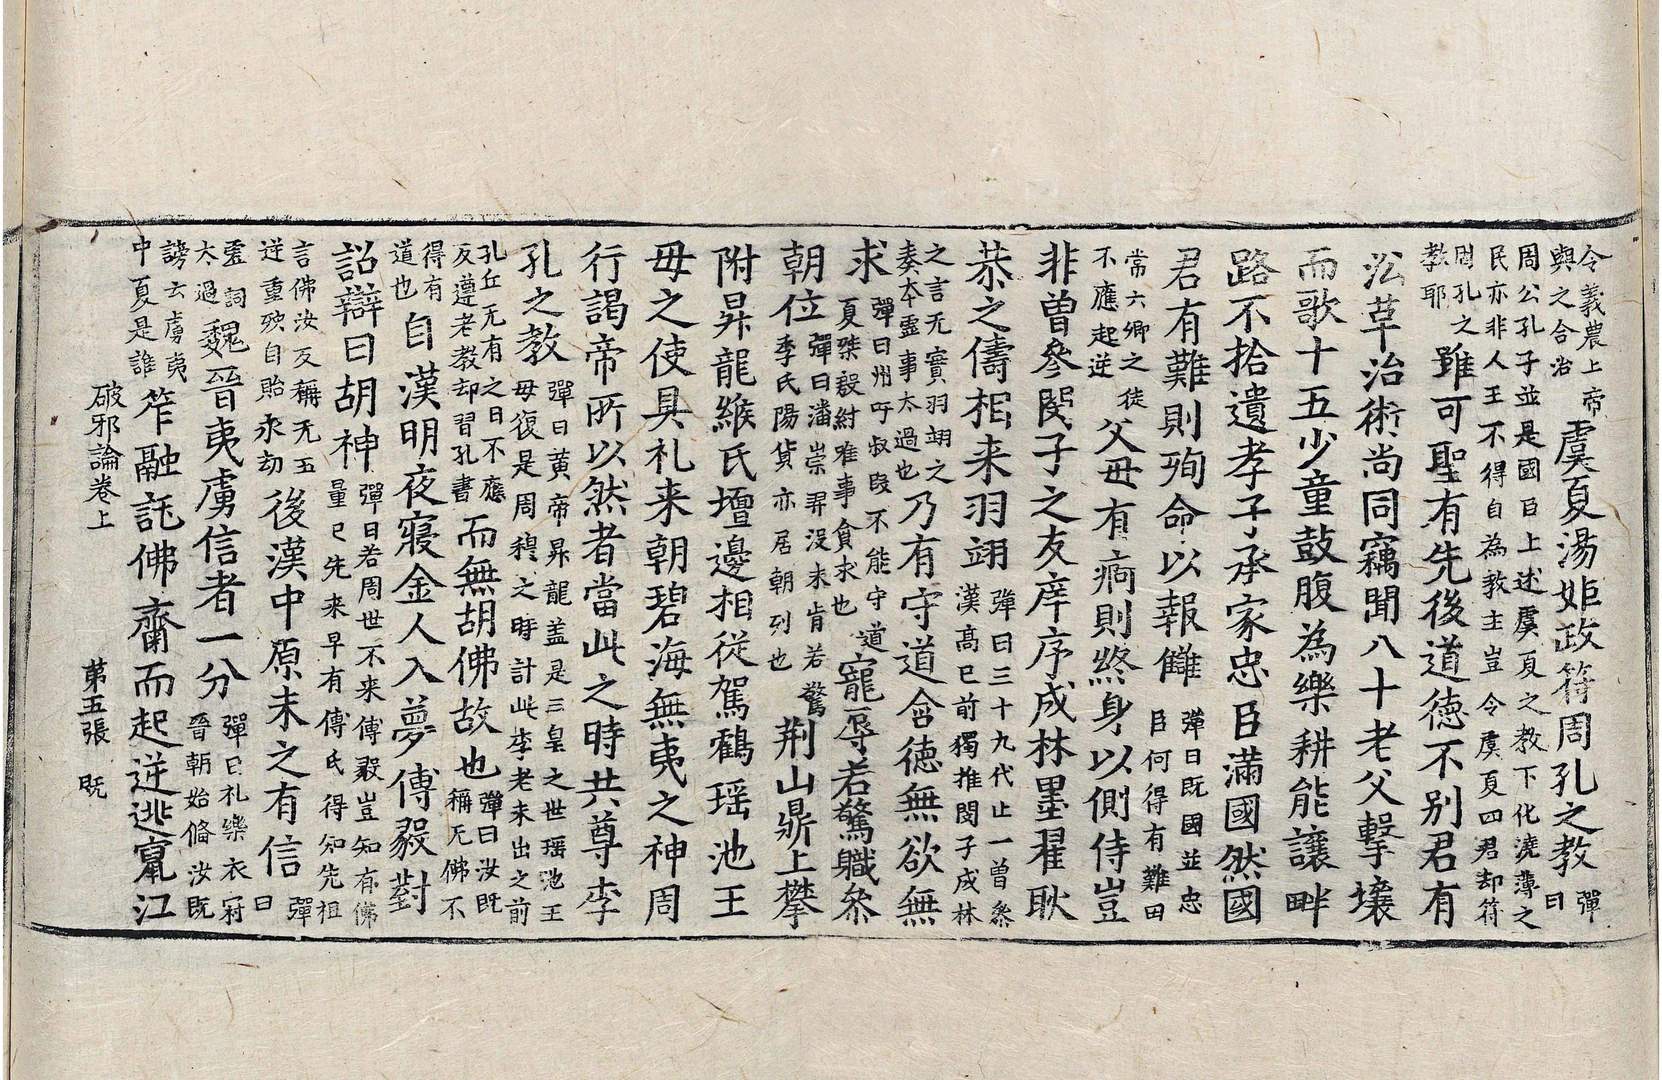 令羲農上帝
與之合治
虞夏湯姬政符周孔之教
彈
曰
周公孔子並是國臣上述虞夏之教下化澆薄之
民亦非人王不得自為教主豈令虞夏四君却符
周孔之
教耶
雖可聖有先後道德不別君有
訟草治術尚同竊聞八十老父擊壤
而歌十五少童鼓腹為樂耕能讓畔
路不拾遺孝子承家忠臣滿國然國
君有難則殉命以報讎
彈曰既國並忠
臣何得有難田
常六卿之徒
不應起逆
父母有痾則終身以側侍豈
非曾參閔子之友庠序成林墨翟耿
恭之儔相来羽翊
彈曰三十九代止一曾參
漢高已前獨推閔子成林
之言无實羽翊之
奏本虛事太過也
乃有守道含德無欲無
求
彈曰州吁叔段不能守道
夏桀殷紂唯事貪求也
寵辱若驚職參
朝位
彈曰潘崇羿浞未肯若驚
季氏陽貨亦居朝列也
荆山鼎上攀
附昇龍緱氏壇邊相従駕鶴瑶池王
母之使具礼来朝碧海無夷之神周
行謁帝所以然者當此之時共尊李
孔之教
彈曰黃帝昇龍盖是三皇之世瑶池王
母復是周穆之時計此李老未出之前
孔丘无有之日不應
反遵老教却習孔書
而無胡佛故也
彈曰汝既
稱无佛不
得有
道也
自漢明夜寢金人入夢傅毅對
詔辯曰胡神
彈曰若周世不来傅毅豈知有佛
量已先来早有傅氏得知先祖
言佛汝反稱无五
逆重殃自貽永劫
後漢中原未之有信
彈
曰
虛詞
太過
魏晉夷虜信者一分
彈曰礼樂衣冠
晉朝始俻汝既
謗云虜夷
中夏是誰
笮融託佛齋而起逆逃竄江
破邪論卷上 第五張 既